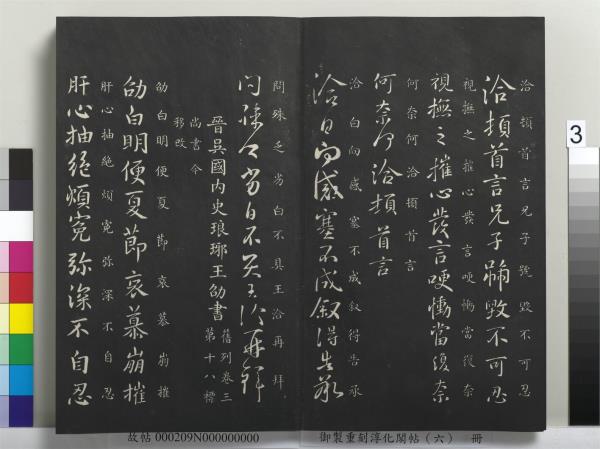 洽頓首言兄子號毀不可忍
洽頓首言兄子號毀不可忍
視撫之摧心發言哽慟當復奈
視撫之摧心發言哽慟當復奈
何奈何洽頓首言
何奈何洽頓首言
洽白向感塞不成叙得告承
洽白向感塞不成叙得告承
問殊乏劣白不具王洽再拜
問殊乏劣白不具王洽再拜
晉吳國內史琅琊王劭書
舊列卷三
第十八標
尚書令
移改
劭白明便夏節哀慕崩摧
劭白明便夏節哀慕崩摧
肝心抽絶煩寃弥深不自忍
肝心抽絶煩寃弥深不自忍
3
故帖 000209N000000000
御製重刻淳化閣帖（六） 冊